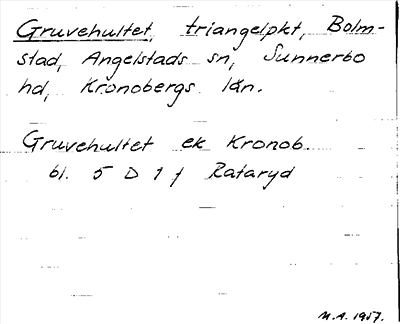 Gruvehultet, triangelpkt, Bolm-
stad, Angelstads sn, Sunnerbo
hd, Kronobergs län.
Gruvehultet ek Kronob.
bl. 5 D 1 f Rataryd
M.A. 1957.